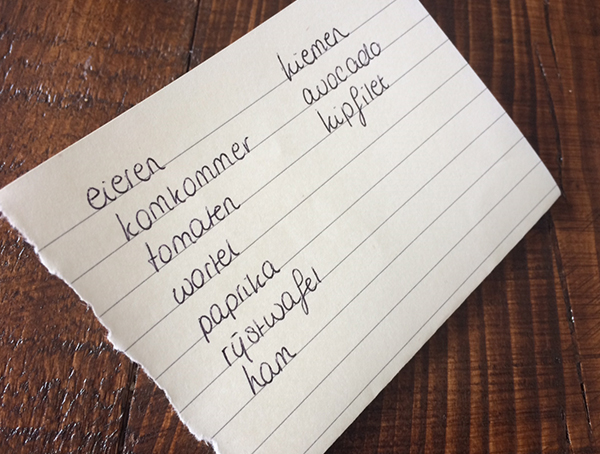 eieren
komkommer
tomaten
wortel
paprika
rijstwafel
ham
kiemen
avocado
kipfilet